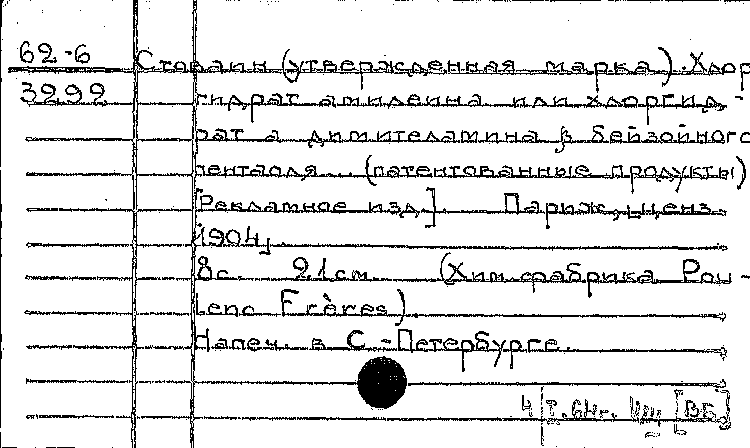 62-6
3292
Стоваин (утвержденная марка). Хлор
гидрат амилеина или хлоргид-
рат α димителамина β бейзойного
пентаоля... (патентованные продукты)
[Рекламное изд.]. Париж, ценз.
1904.
8с. 21см. (Хим. фабрика Pou-
lenc Frères).
Напеч. в С-Петербурге.
4 I.64г. [ВБ]